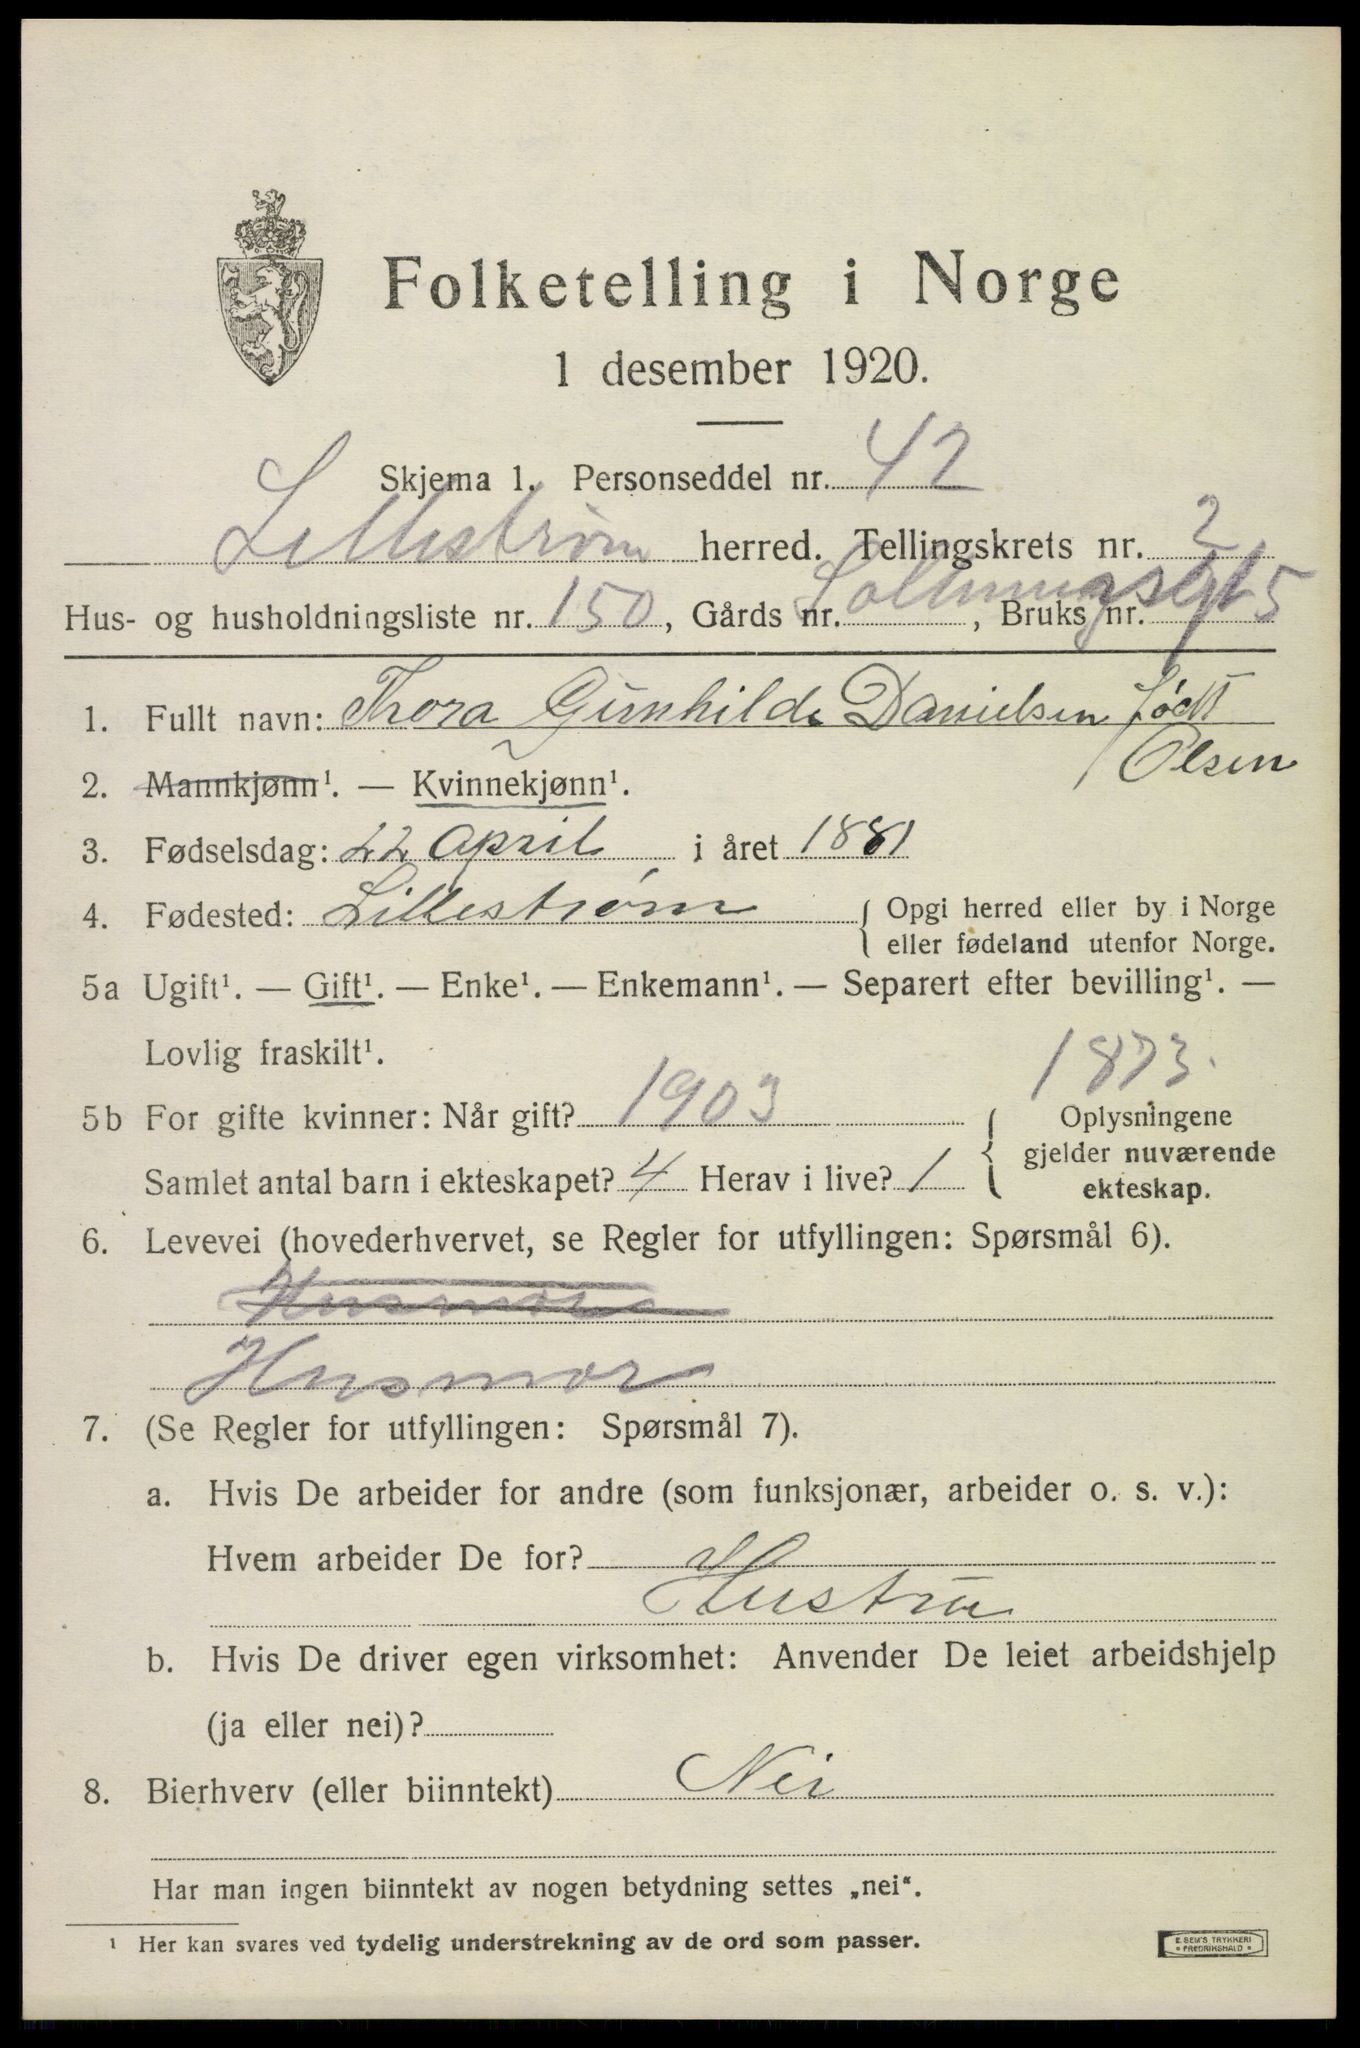 Folketelling i Norge
1 desember 1920.
Skjema 1. Personseddel nr. 42
Lillestrøm herred. Tellingskrets nr. 2
Hus- og husholdningsliste nr. 150, Gårds nr. , Bruks nr. 5
1. Fullt navn: Thora Gunhilde Danielsen født
Olsen
2. Mannkjønn¹. — Kvinnekjønn¹.
3. Fødselsdag: 22 april i året 1881
4. Fødested: Lillestrøm { Opgi herred eller by i Norge
eller fødeland utenfor Norge.
5a Ugift¹. — Gift¹. — Enke¹. — Enkemann¹. — Separert efter bevilling¹. —
Lovlig fraskilt¹.
1873.
5b For gifte kvinner: Når gift? 1903 { Oplysningene
gjelder nuværende
Samlet antal barn i ekteskapet? 4 Herav i live? 1
ekteskap.
6. Levevei (hovederhvervet, se Regler for utfyllingen: Spørsmål 6).
Husmor
Husmor
7. (Se Regler for utfyllingen: Spørsmål 7).
a. Hvis De arbeider for andre (som funksjonær, arbeider o. s. v.):
Hvem arbeider De for?
Hustru
b. Hvis De driver egen virksomhet: Anvender De leiet arbeidshjelp
(ja eller nei)?
8. Bierhverv (eller biinntekt) Nei
Har man ingen biinntekt av nogen betydning settes „nei“.
¹ Her kan svares ved tydelig understrekning av de ord som passer.
E. SEM'S TRYKKERI
• FREDRIKSHALD •